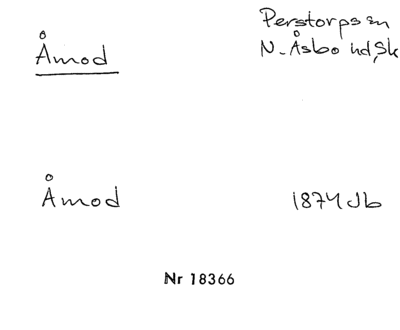 Åmod
Perstorps sn
N. Åsbo hd, Sk
Åmod
1874 Jb
Nr 18366